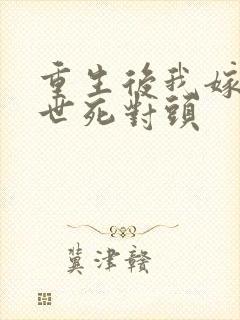 重生後我嫁
世死對頭
冀津贛